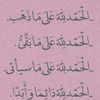 .الْحَمْدُ لِلَّهِ عَلَىٰ مَا ذَهَبَ
.الْحَمْدُ لِلَّهِ عَلَىٰ مَا بَقَىٰ
.الْحَمْدُ لِلَّهِ عَلَىٰ مَا سَيَأْتِي
.الْحَمْدُ لِلَّهِ دَائِمًا وَأَبَدًا